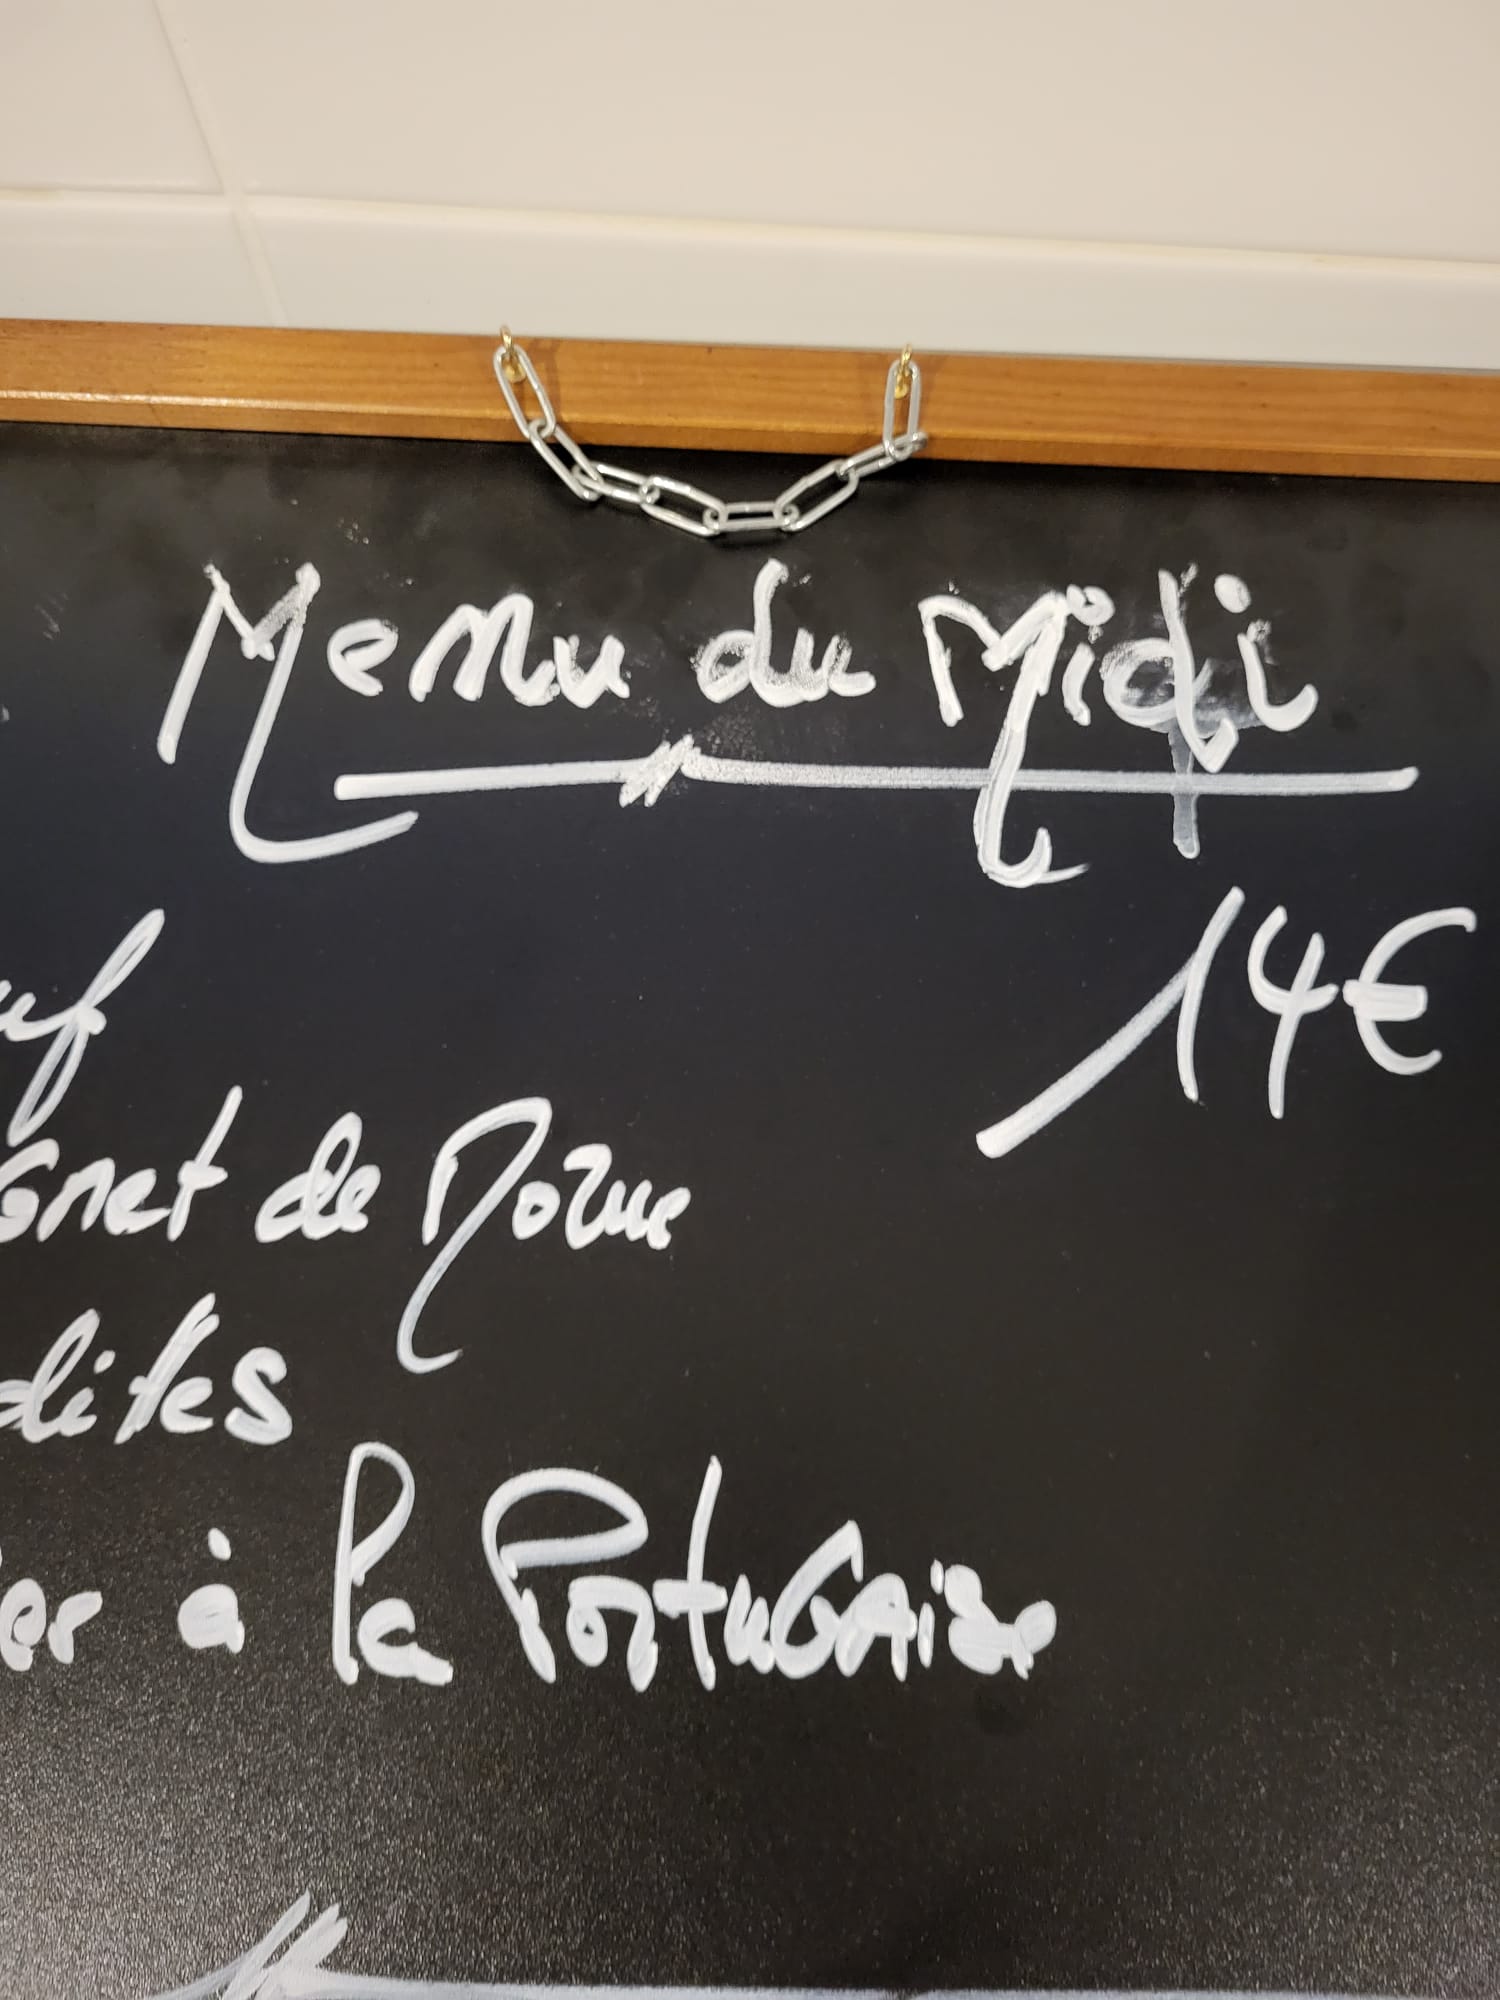 Menu du Midi
14€
uf
gnet de Morue
dites
er à la Portugaise